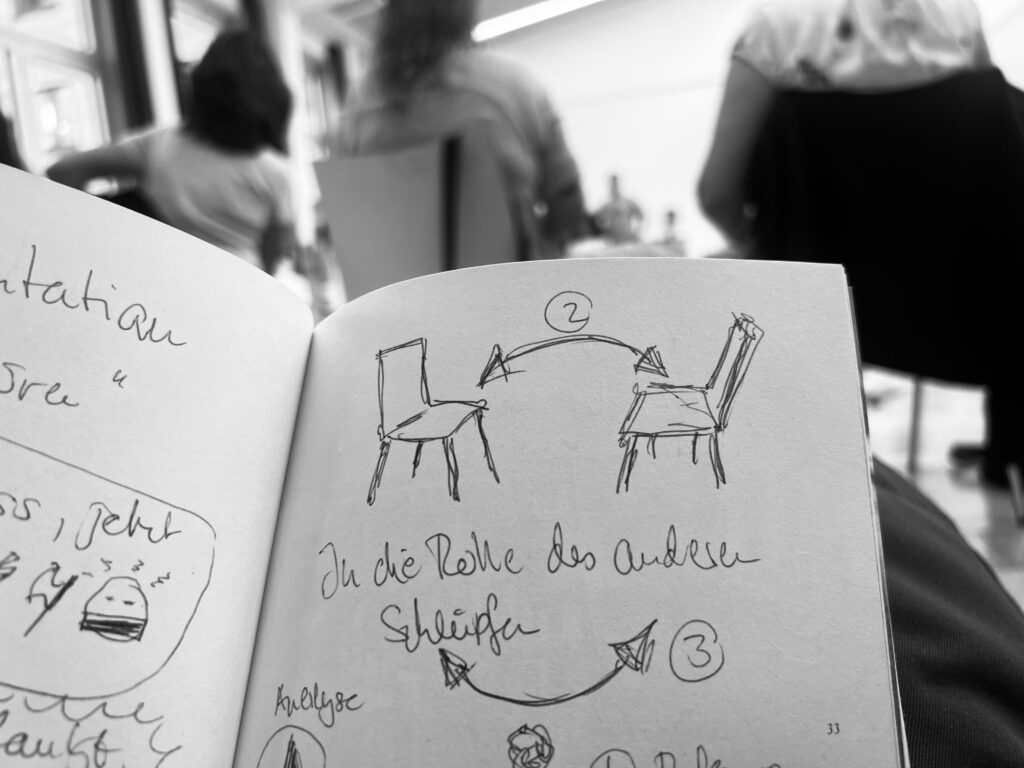 ntation
"
ss, jetzt
2
In die Rolle des anderen
Schlüpfen
3
Analyse
33